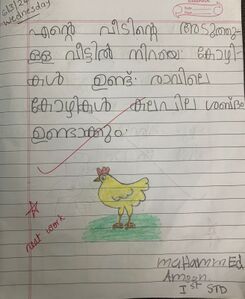 6/3/24
Wednesday
എന്റെ വീടിന്റെ അടുത്തു-
ള്ള വീട്ടിൽ നിറയെ കോഴി-
കൾ ഉണ്ട്. രാവിലെ
കോഴികൾ കലപില ശബ്ദം
ഉണ്ടാക്കും.
neat work
muHammEd
Ameen
Ist STD